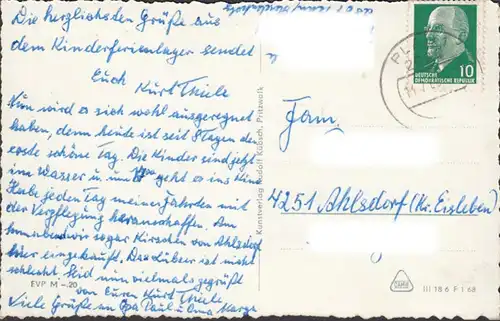 Die herzlichsten Grüße aus
dem Kinderferienlager sendet
Euch Kurt Thiele
Nun wird es sich wohl ausgeregnet
haben, denn heute ist seit 8 Tagen der
erste schöne Tag. Die Kinder sind jetzt
im Wasser u. um geht es ins Kino
Habe jeden Tag meine Fahrten mit
der Verpflegung heranschaffen. Am
Sonnabend wir sogar Kirschen von Ahlsdorf
hier eingekauft. Das Lüber ist nicht
schlecht. Seid nun vielmals gegrüßt
von Euren Kurt Thiele
Viele Grüße an Opa Paul u Oma Marga
EVP M -.20
Kunstverlag Rudolf Kübsch, Pritzwalk
10
DEUTSCHE
DEMOKRATISCHE REPUBLIK
PL
Fam.
4251 Ahlsdorf (Kr. Eisleben)
III 18 6 F 1 68